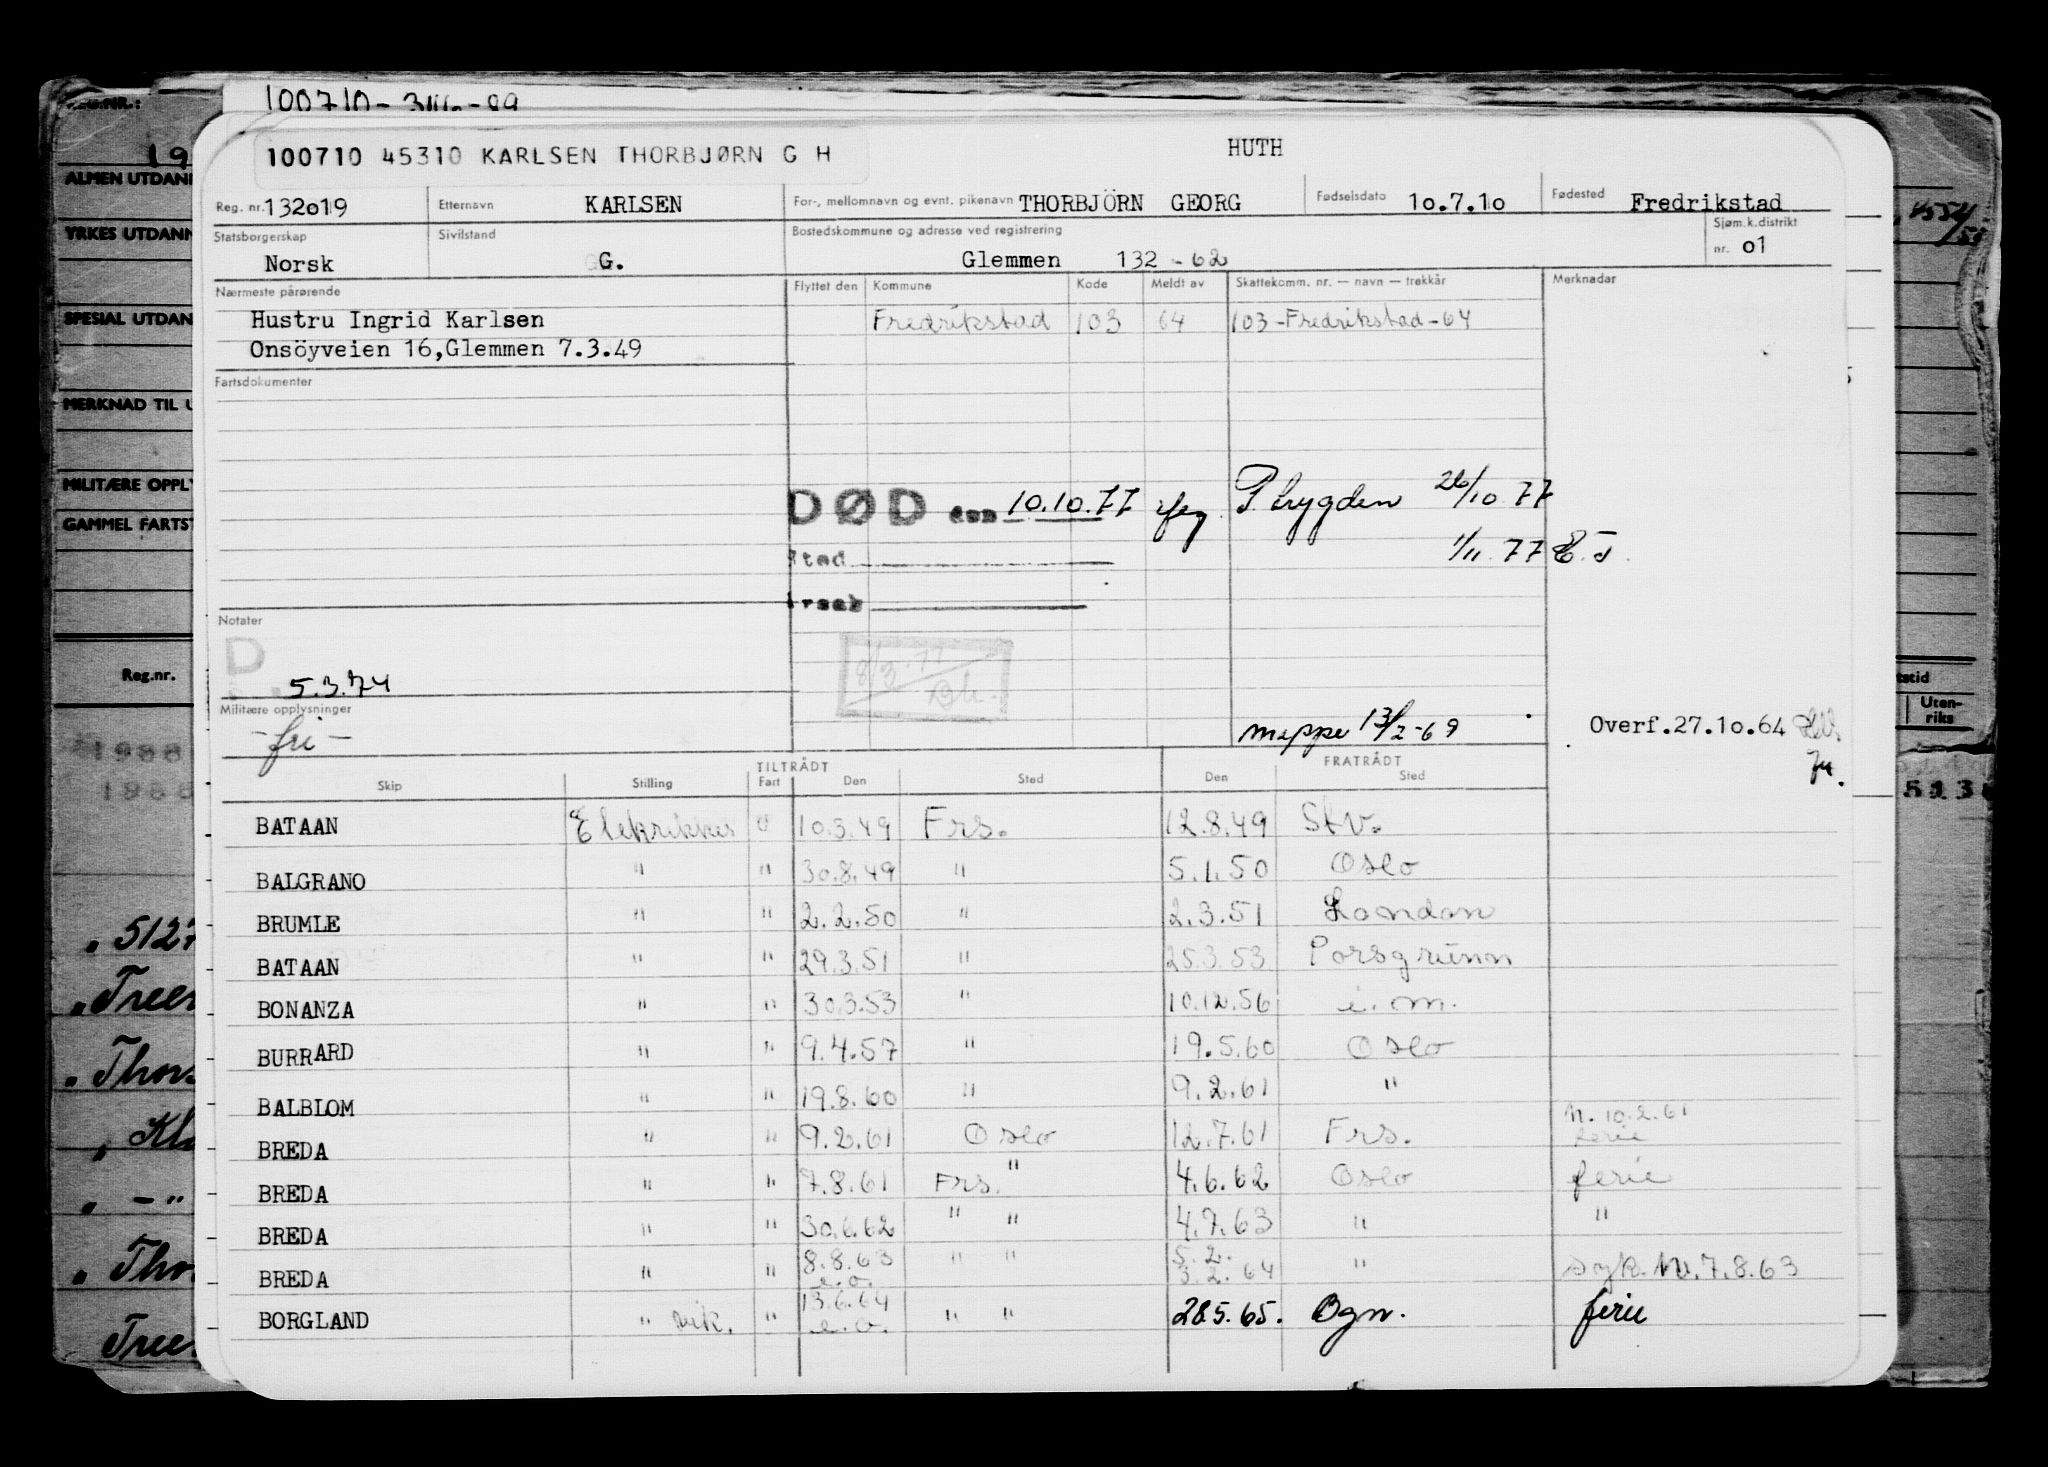 100710-
100710 45310 KARLSEN THORBJØRN G H
HUTH
Reg. nr. 132o19 Etternavn KARLSEN For-, mellomnavn og evnt. pikenavn THORBJÖRN GEORG Fødselsdato 1o.7.1o Fødested Fredrikstad
Statsborgerskap Norsk Sivilstand G. Bostedskommune og adresse ved registrering Glemmen 132 - 62 Sjøm.k.distrikt nr. o1
Nærmeste pårørende Flyttet den Kommune Kode Meldt av Skattekomm. nr. — navn — trekkår Merknadar
Hustru Ingrid Karlsen Fredrikstad 103 64 103-Fredrikstad-64
Onsöyveien 16,Glemmen 7.3.49
Fartsdokumenter
DØD den 10.10.77 flg. P trygden 26/10 77
1/11 77 E.J.
Sted
Årsak
Notater
D
8/3.77
5.3.74
Militære opplysninger
-fri-
mappe 13/2-69
Overf.27.1o.64
TILTRÅDT FRATRÅDT
Skip Stilling Fart Den Sted Den Sted
BATAAN Elekrikker U 10.3.49 Frs. 12.8.49 Stv.
BALGRANO " " 30.8.49 " 5.1.50 Oslo
BRUMLE " " 2.2.50 " 2.3.51 London
BATAAN " " 29.3.51 " 25.3.53 Porsgrunn
BONANZA " " 30.3.53 " 10.12.56 i.m.
BURRARD " " 9.4.57 " 19.5.60 Oslo
BALBLOM " " 19.8.60 " 9.2.61 "
BREDA " " 9.2.61 Oslo 12.7.61 Frs. N. 10.2.61 ferie
BREDA " " 7.8.61 Frs. " 4.6.62 Oslo ferie
BREDA " " 30.6.62 " " 4.7.63 " "
BREDA " " 8.8.63 e.o. " " 5.2. 3.2.64 " syk. N.7.8.63
BORGLAND " vik. " 13.6.64 e.o. " " 28.5.65. Bgn. ferie
REG.NR.:
19
ALMEN UTDAN
YRKES UTDANN
SPESIAL UTDAN
MERKNAD TIL U
MILITÆRE OPPLY
GAMMEL FARTST
Reg.nr.
1986
1986
" 5127
" Tree
" Thors
" Kl
" - "
" Tho
Tree
tstid
Uten-
riks
513